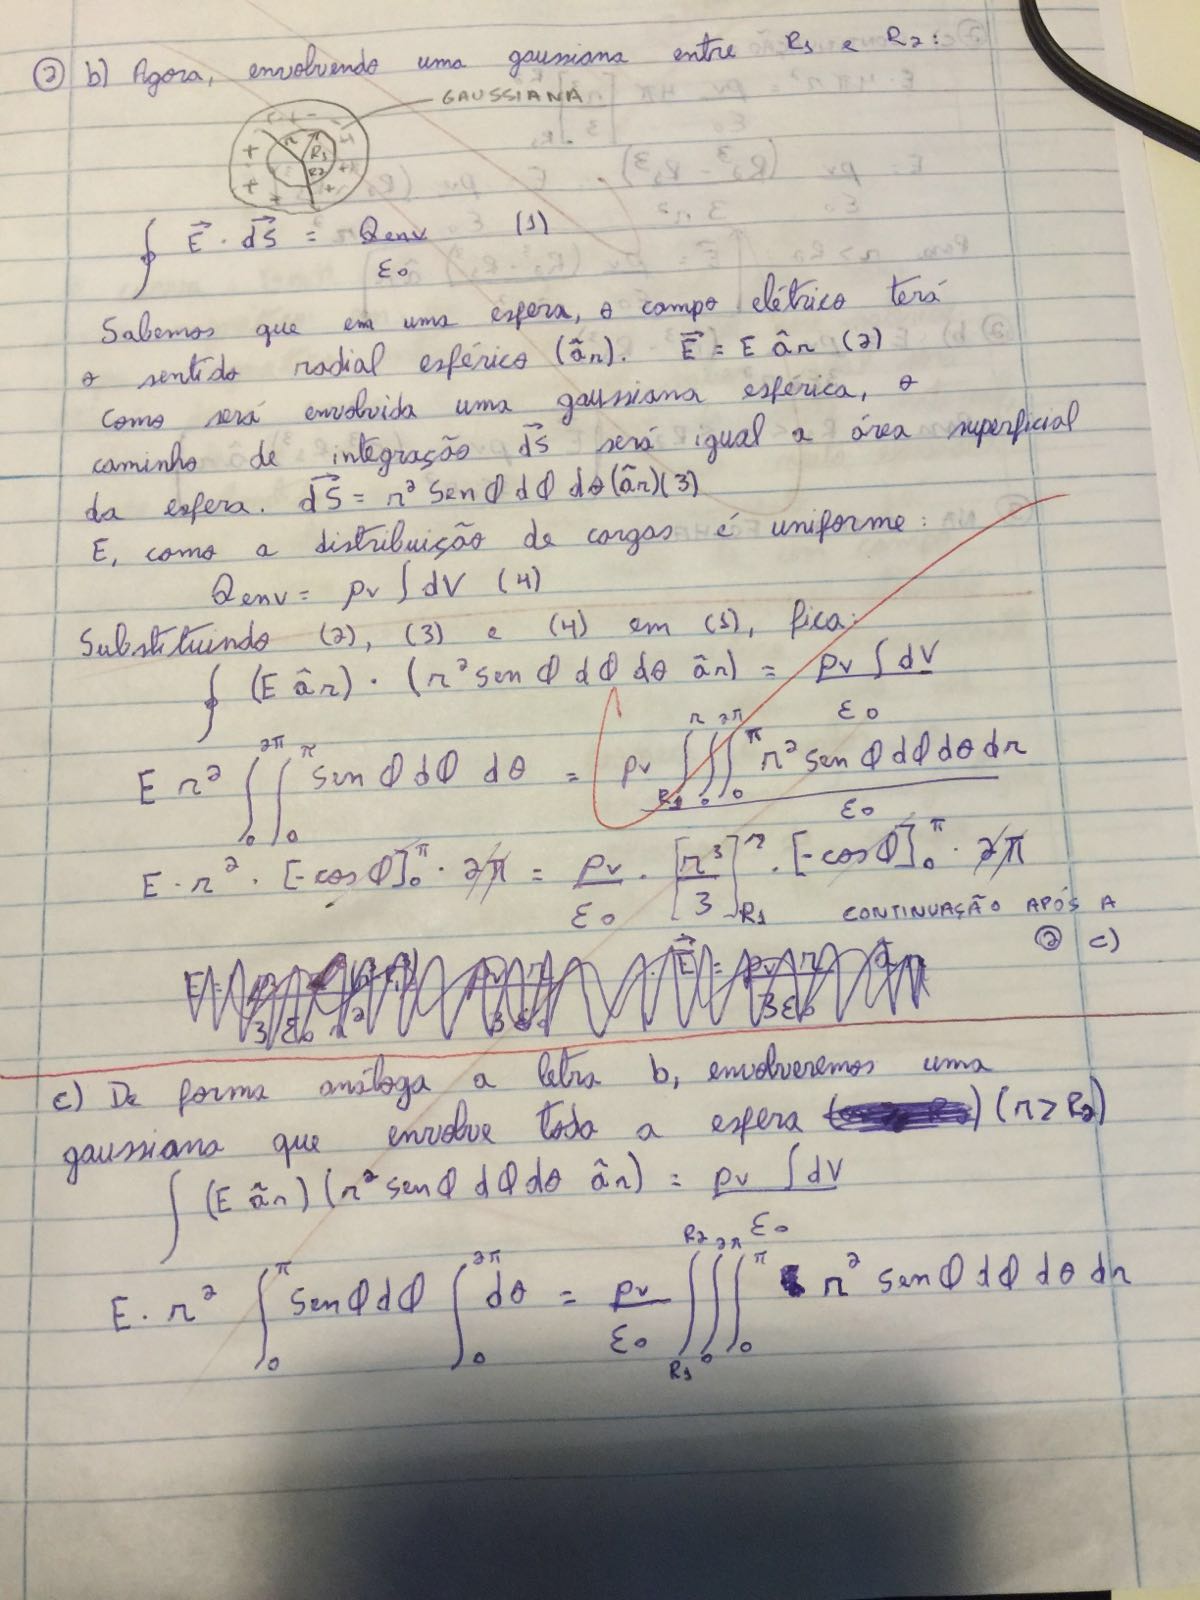 ② b) Agora, envolvendo uma gaussiana entre R1 e R2:
GAUSSIANA
+ + - + + + + + +
r R1 R2
∮ E⃗ · dS⃗ = Qenv/ε0 (1)
Sabemos que em uma esfera, o campo elétrico terá
o sentido radial esférico (âr). E⃗ = E âr (2)
como será envolvida uma gaussiana esférica, o
caminho de integração dS⃗ será igual a área superficial
da esfera. dS⃗ = r² sen Φ dΦ dθ (âr) (3)
E, como a distribuição de cargas é uniforme:
Qenv = ρv ∫ dV (4)
Substituindo (2), (3) e (4) em (1), fica:
∮ (E âr) · (r² sen Φ dΦ dθ âr) = ρv ∫ dV / ε0
E r² ∫₀^2π ∫₀^π sen Φ dΦ dθ = ρv ∫_R1^r ∫₀^2π ∫₀^π r² sen Φ dΦ dθ dr / ε0
E · r² · [-cos Φ]₀^π · 2π = ρv/ε0 · [r³/3]_R1^r · [-cos Φ]₀^π · 2π
CONTINUAÇÃO APÓS A
② c)
c) De forma análoga a letra b, envolveremos uma
gaussiana que envolve toda a esfera (r > R2)
∫ (E âr) (r² sen Φ dΦ dθ âr) = ρv ∫ dV / ε0
E · r² ∫₀^π sen Φ dΦ ∫₀^2π dθ = ρv/ε0 ∫_R1^R2 ∫₀^2π ∫₀^π r² sen Φ dΦ dθ dr